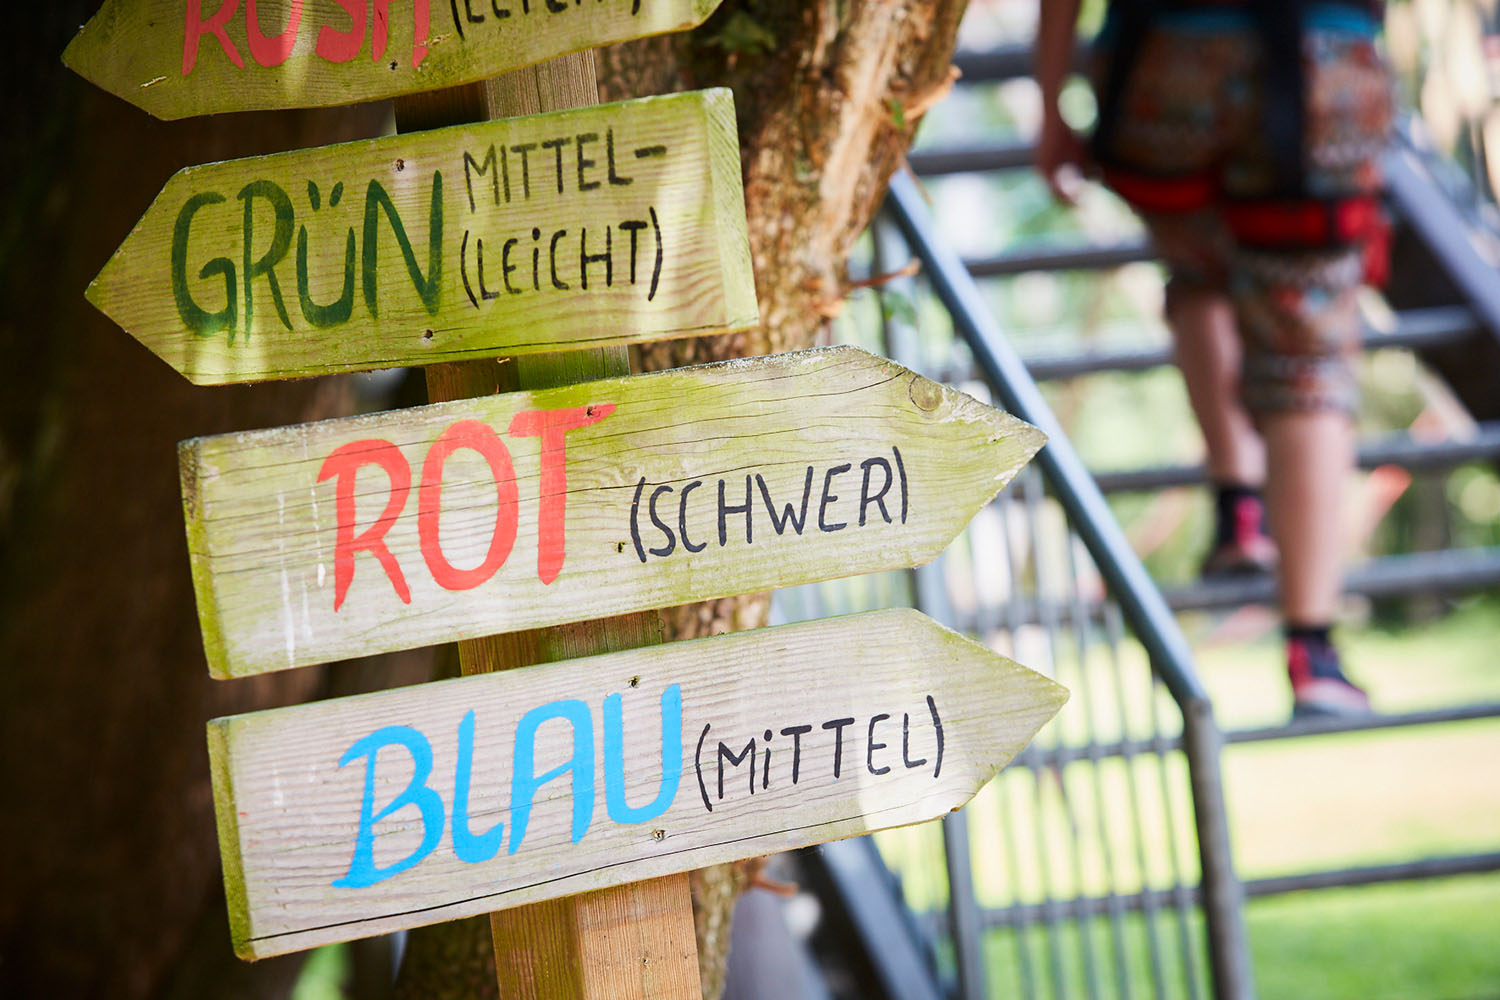 ROSA (LEICHT)
GRÜN MITTEL-
(LEICHT)
ROT (SCHWER)
BLAU (MITTEL)